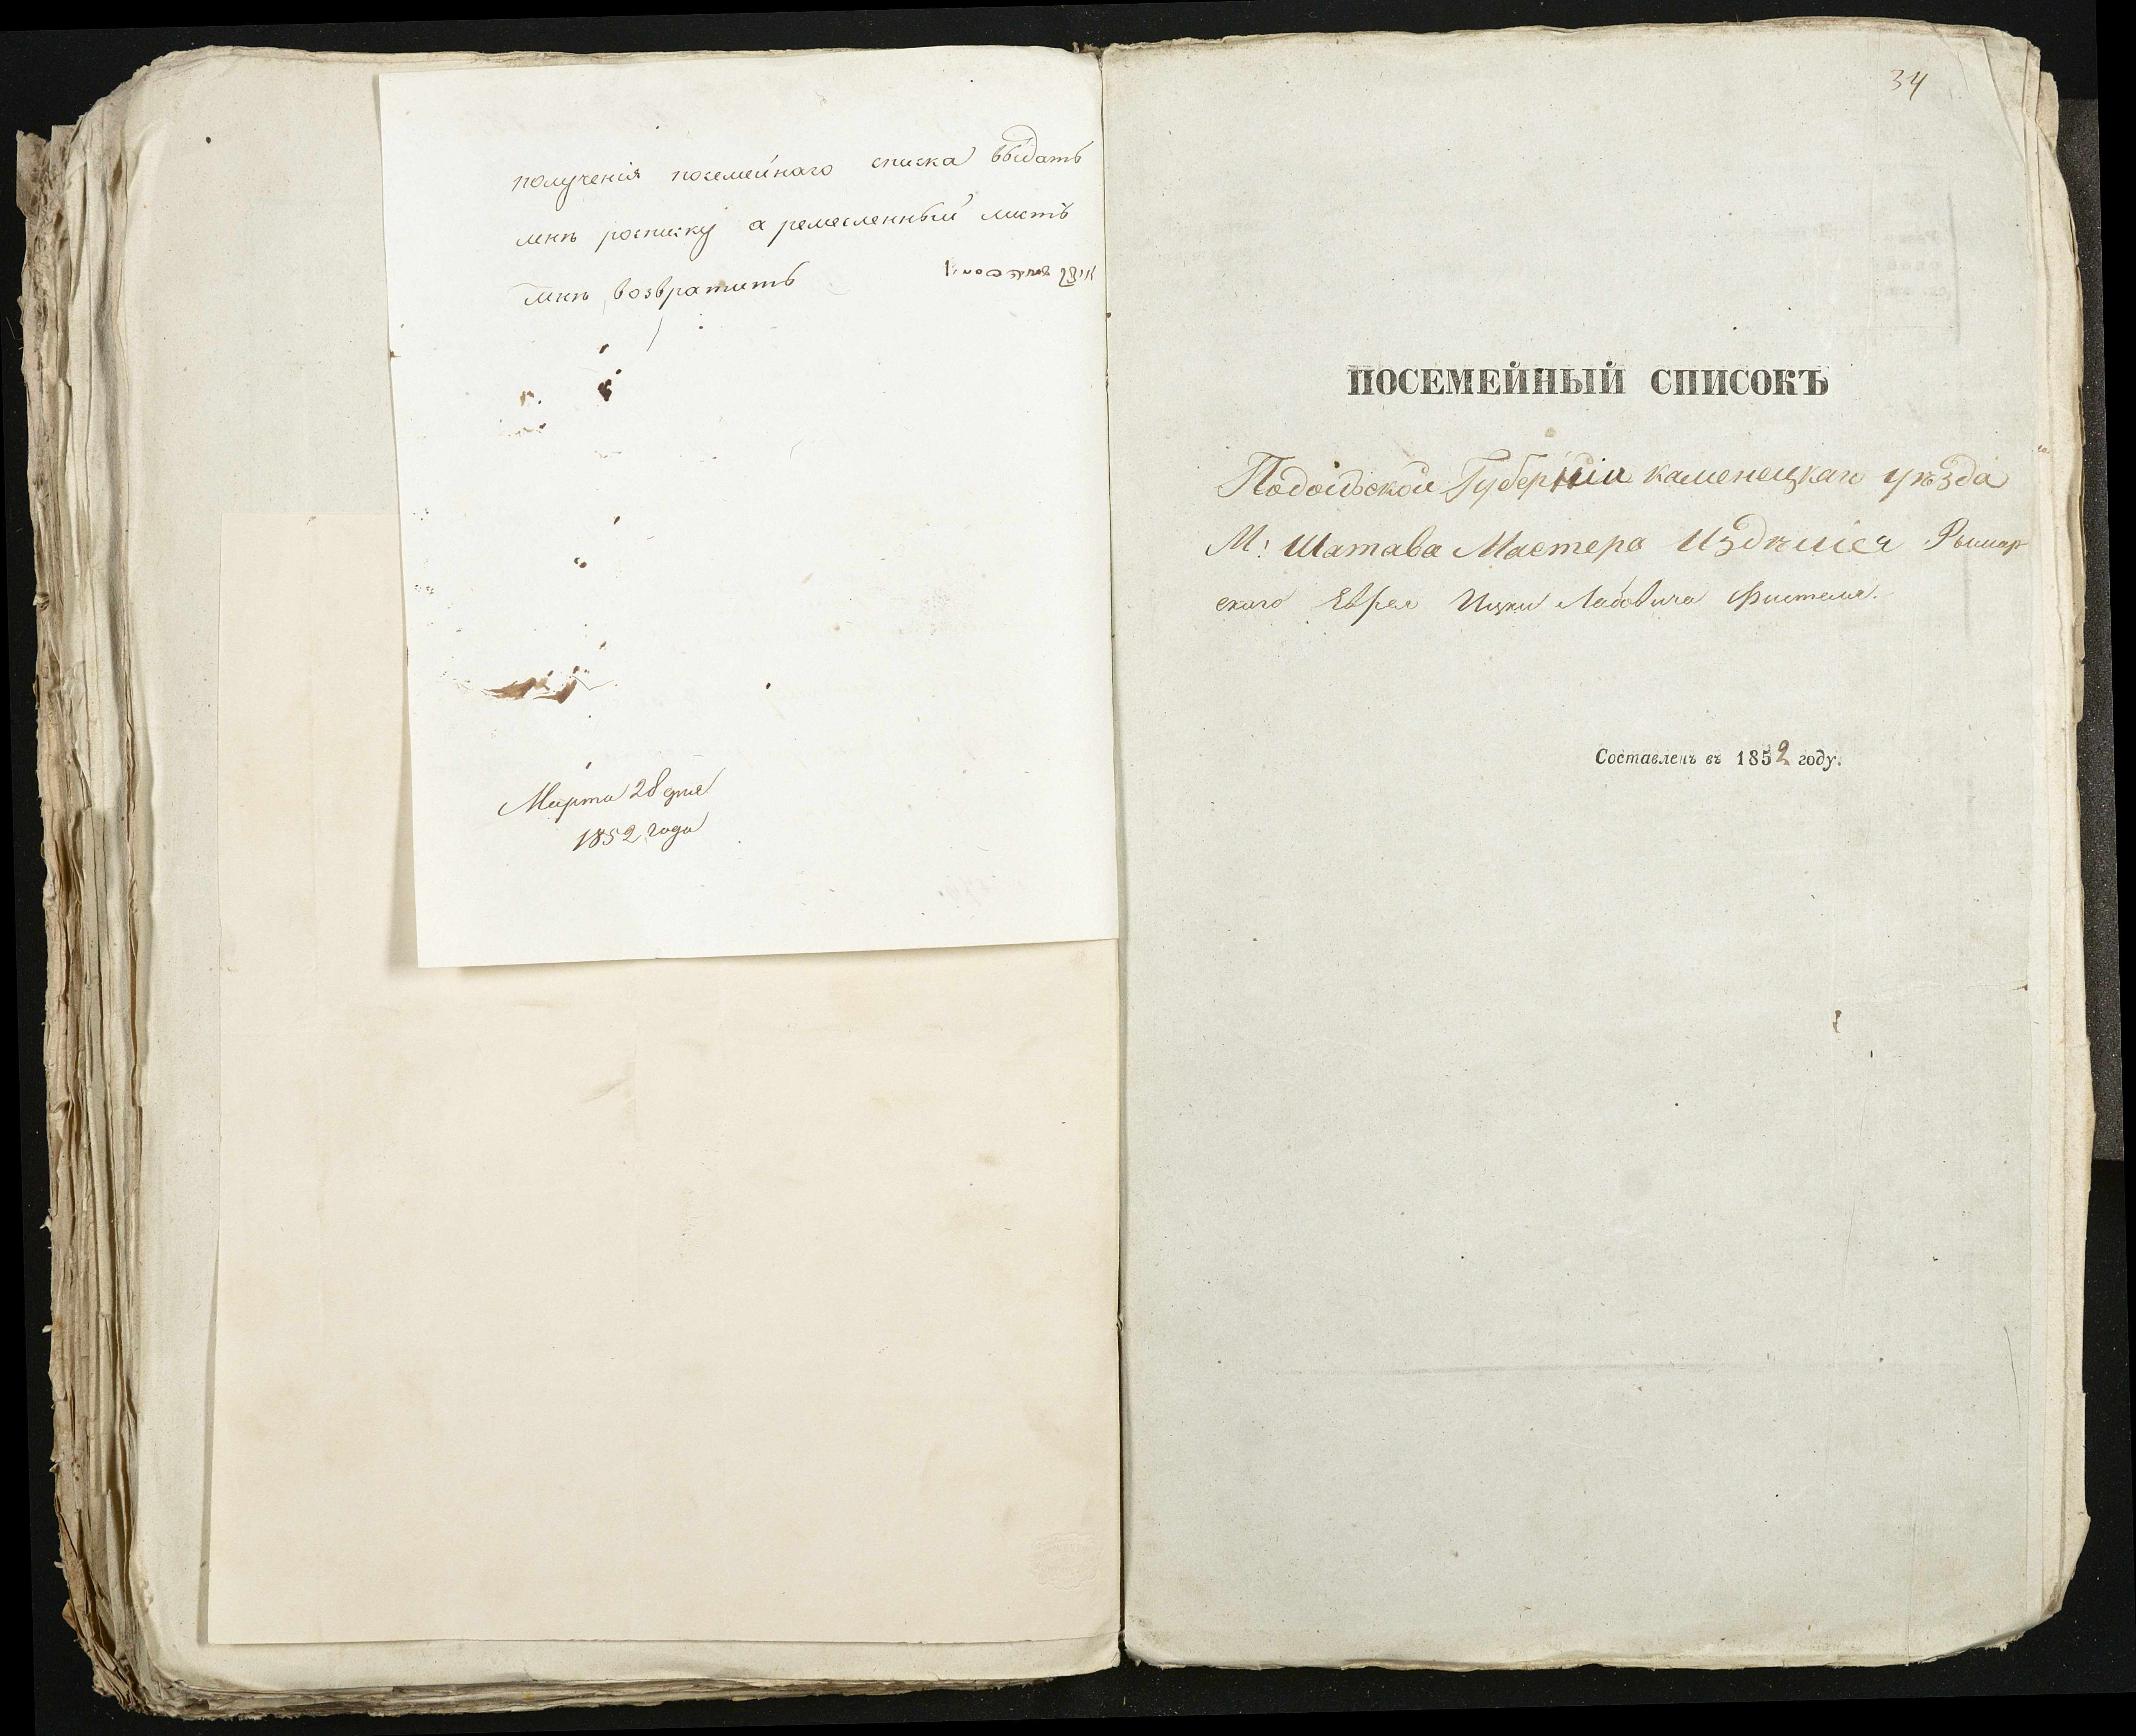 полученія посемейнаго списка выдать
мнѣ росписку а ремесленный листъ
мнѣ возвратить
Марта 28 дня
1852 года
34
ПОСЕМЕЙНЫЙ СПИСОКЪ
Подольской Губерніи каменецкаго уѣзда
М: Шатава Мастера Издѣлія Рымар
скаго Еврея Ицки Лейбовича Фистеля.
Составленъ въ 1852 году.